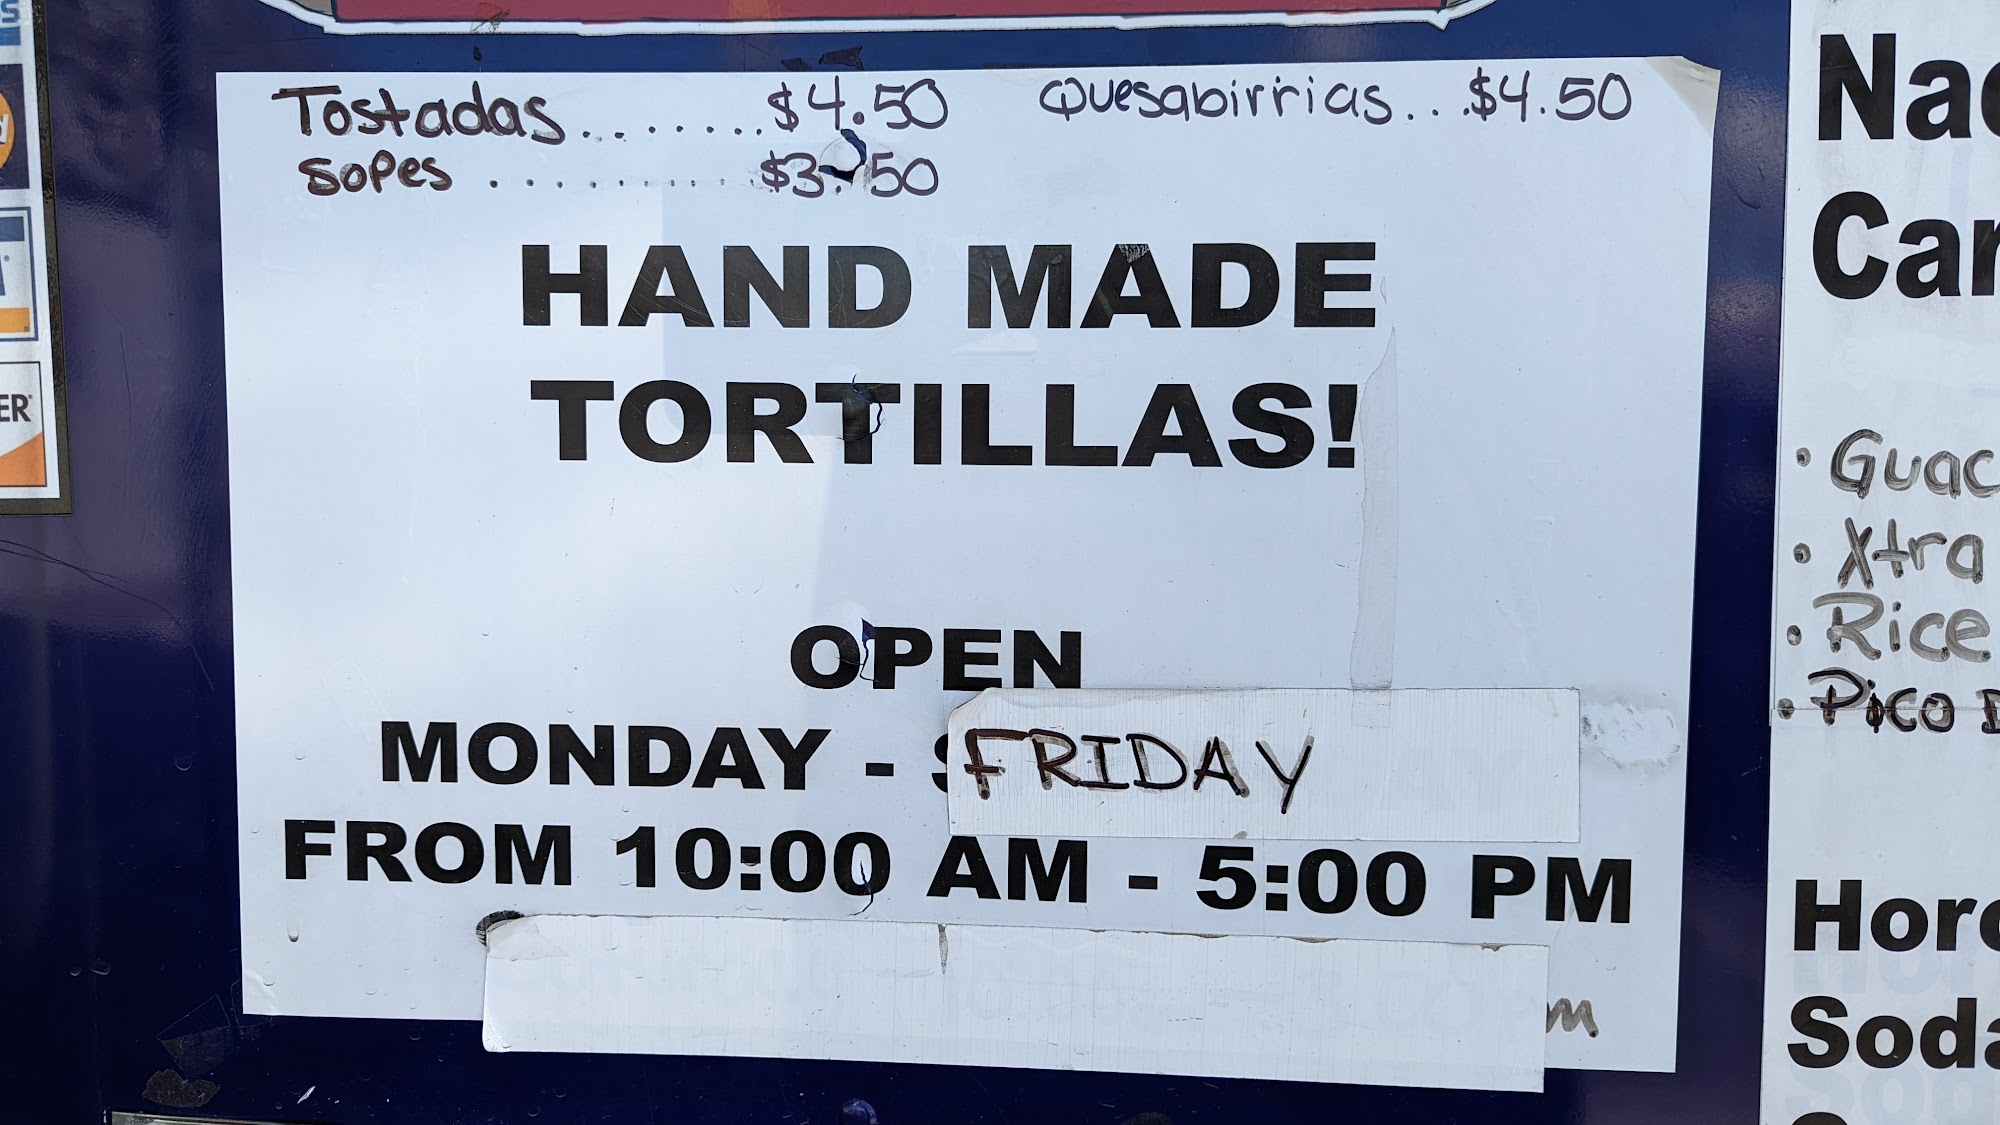 Tostadas........$4.50
Sopes..........$3.50
Quesabirrias...$4.50
HAND MADE
TORTILLAS!
OPEN
MONDAY - FRIDAY
FROM 10:00 AM - 5:00 PM
m
ER
S
Na
Car
• Guac
• Xtra
• Rice
• Pico D
Hor
Soda